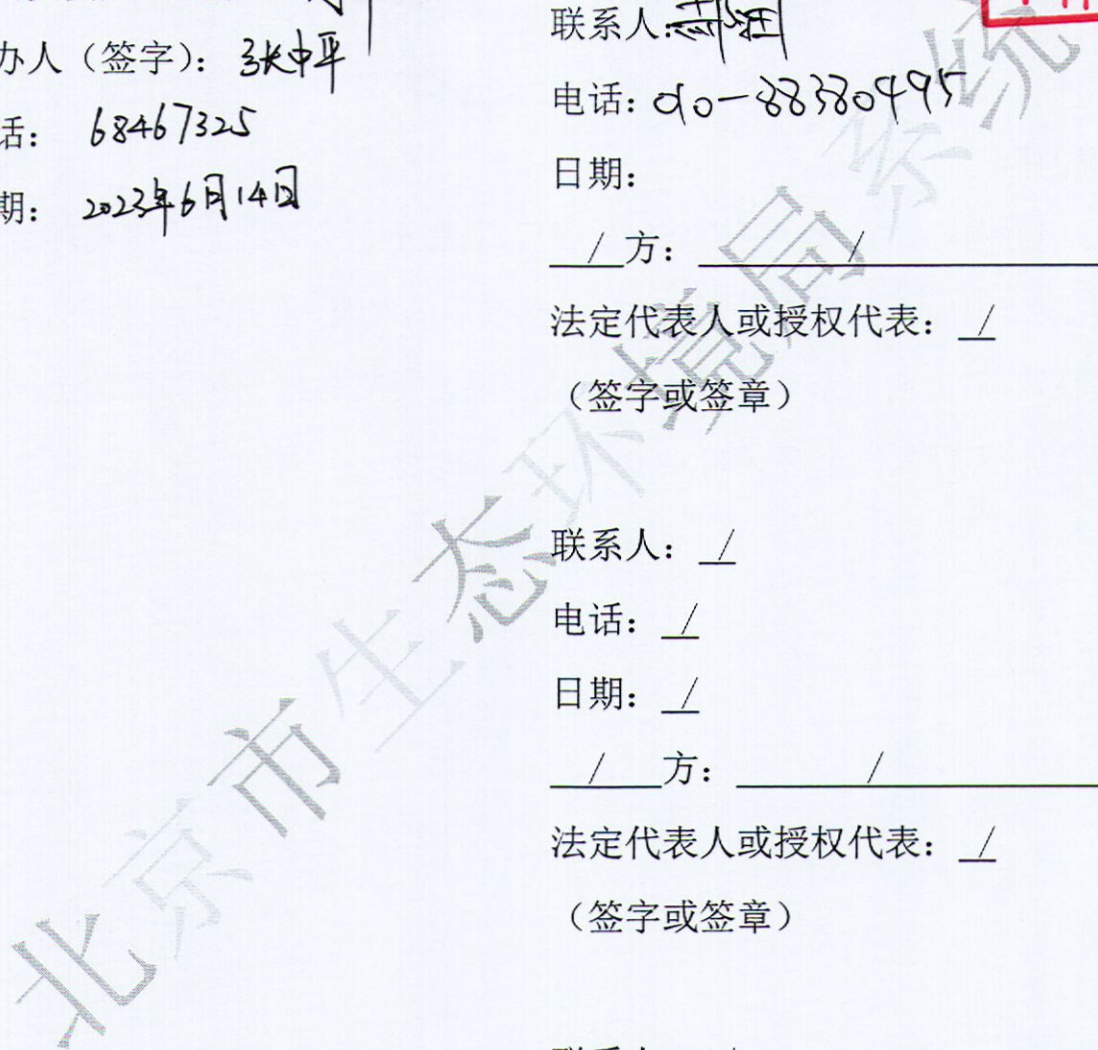 办人（签字）：张中平
话： 68467325
期： 2023年6月14日
联系人:
电话：010-88380495
日期：
/ 方： /
法定代表人或授权代表： /
（签字或签章）
联系人： /
电话： /
日期： /
/ 方： /
法定代表人或授权代表： /
（签字或签章）
北京市生态环境局系统